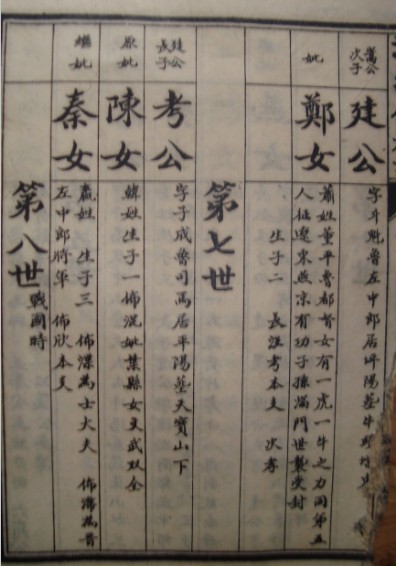 公
次子
廷公
字斗魁魯左中郎居坪陽墓牛
妣
鄭女
蕭姓董平魯都督女有一虎一牛之力同弟五
人征遼東燕京有功子孫滿門世襲受封
生子二 長涯考本支 次孝
第七世
廷公
長子
考公
字子成魯司馬居平陽墓天寶山下
原妣
陳女
韓姓生子一佈混妣葉縣女文武双全
繼妣
秦女
嬴姓 生子三 佈為士大夫 佈為晉
左中郎將軍 佈欣本支
第八世 戰國時